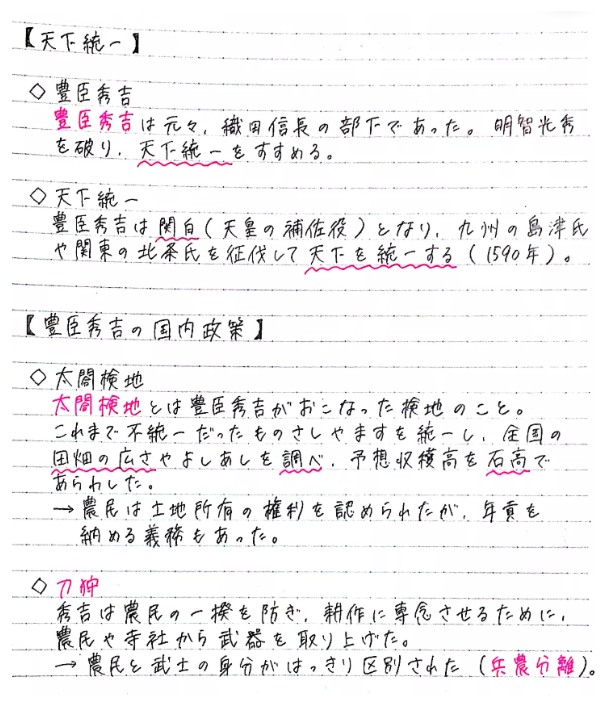 【天下統一】
◇ 豊臣秀吉
豊臣秀吉は元々、織田信長の部下であった。明智光秀
を破り、天下統一をすすめる。
◇ 天下統一
豊臣秀吉は関白(天皇の補佐役)となり、九州の島津氏
や関東の北条氏を征伐して天下を統一する(1590年)。
【豊臣秀吉の国内政策】
◇ 太閤検地
太閤検地とは豊臣秀吉がおこなった検地のこと。
これまで不統一だったものさしやますを統一し、全国の
田畑の広さやよしあしを調べ、予想収穫高を石高で
あらわした。
→ 農民は土地所有の権利を認められたが、年貢を
納める義務もあった。
◇ 刀狩
秀吉は農民の一揆を防ぎ、耕作に専念させるために、
農民や寺社から武器を取り上げた。
→ 農民と武士の身分がはっきり区別された(兵農分離)。